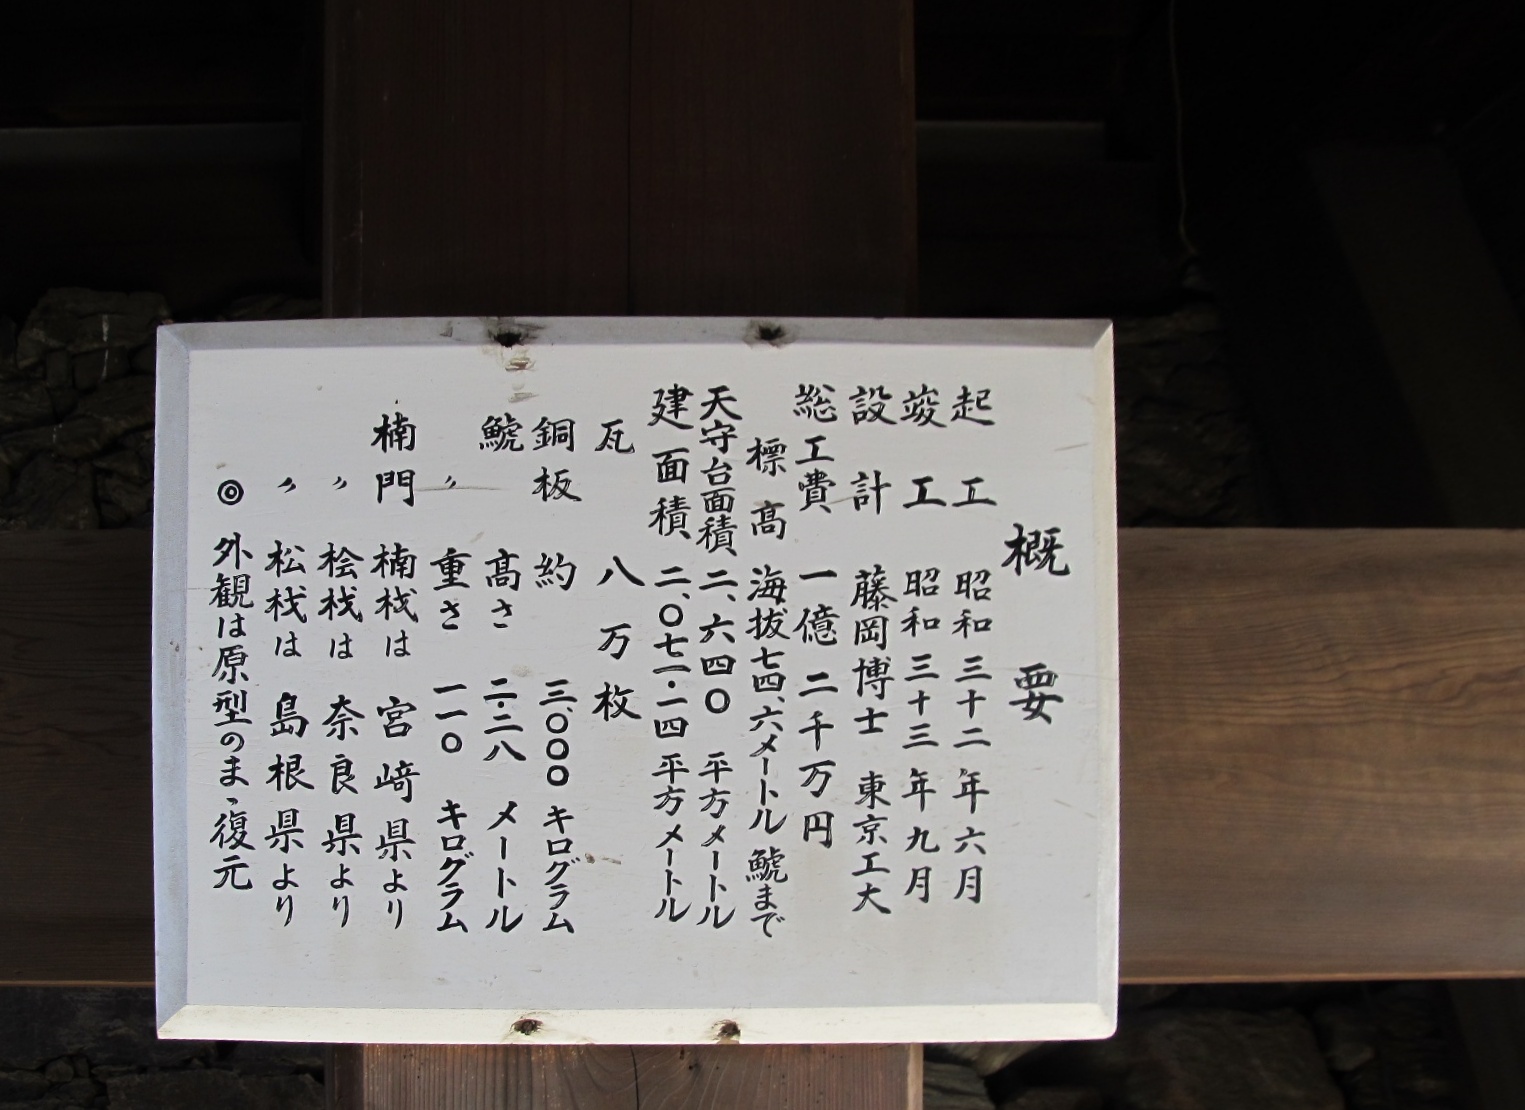 概要
起工 昭和三十二年六月
竣工 昭和三十三年九月
設計 藤岡博士 東京工大
総工費 一億二千万円
標高 海抜七四、六メートル鯱まで
天守台面積、二、六四〇 平方メートル
建面積、二、〇七一・一四 平方メートル
瓦 八万枚
銅板 約 三、〇〇〇キログラム
鯱 高さ 二・二八 メートル
〃 重さ 一一〇 キログラム
楠門 楠材は 宮﨑県より
〃 桧材は 奈良県より
〃 松材は 島根県より
◎外観は原型のまゝ復元